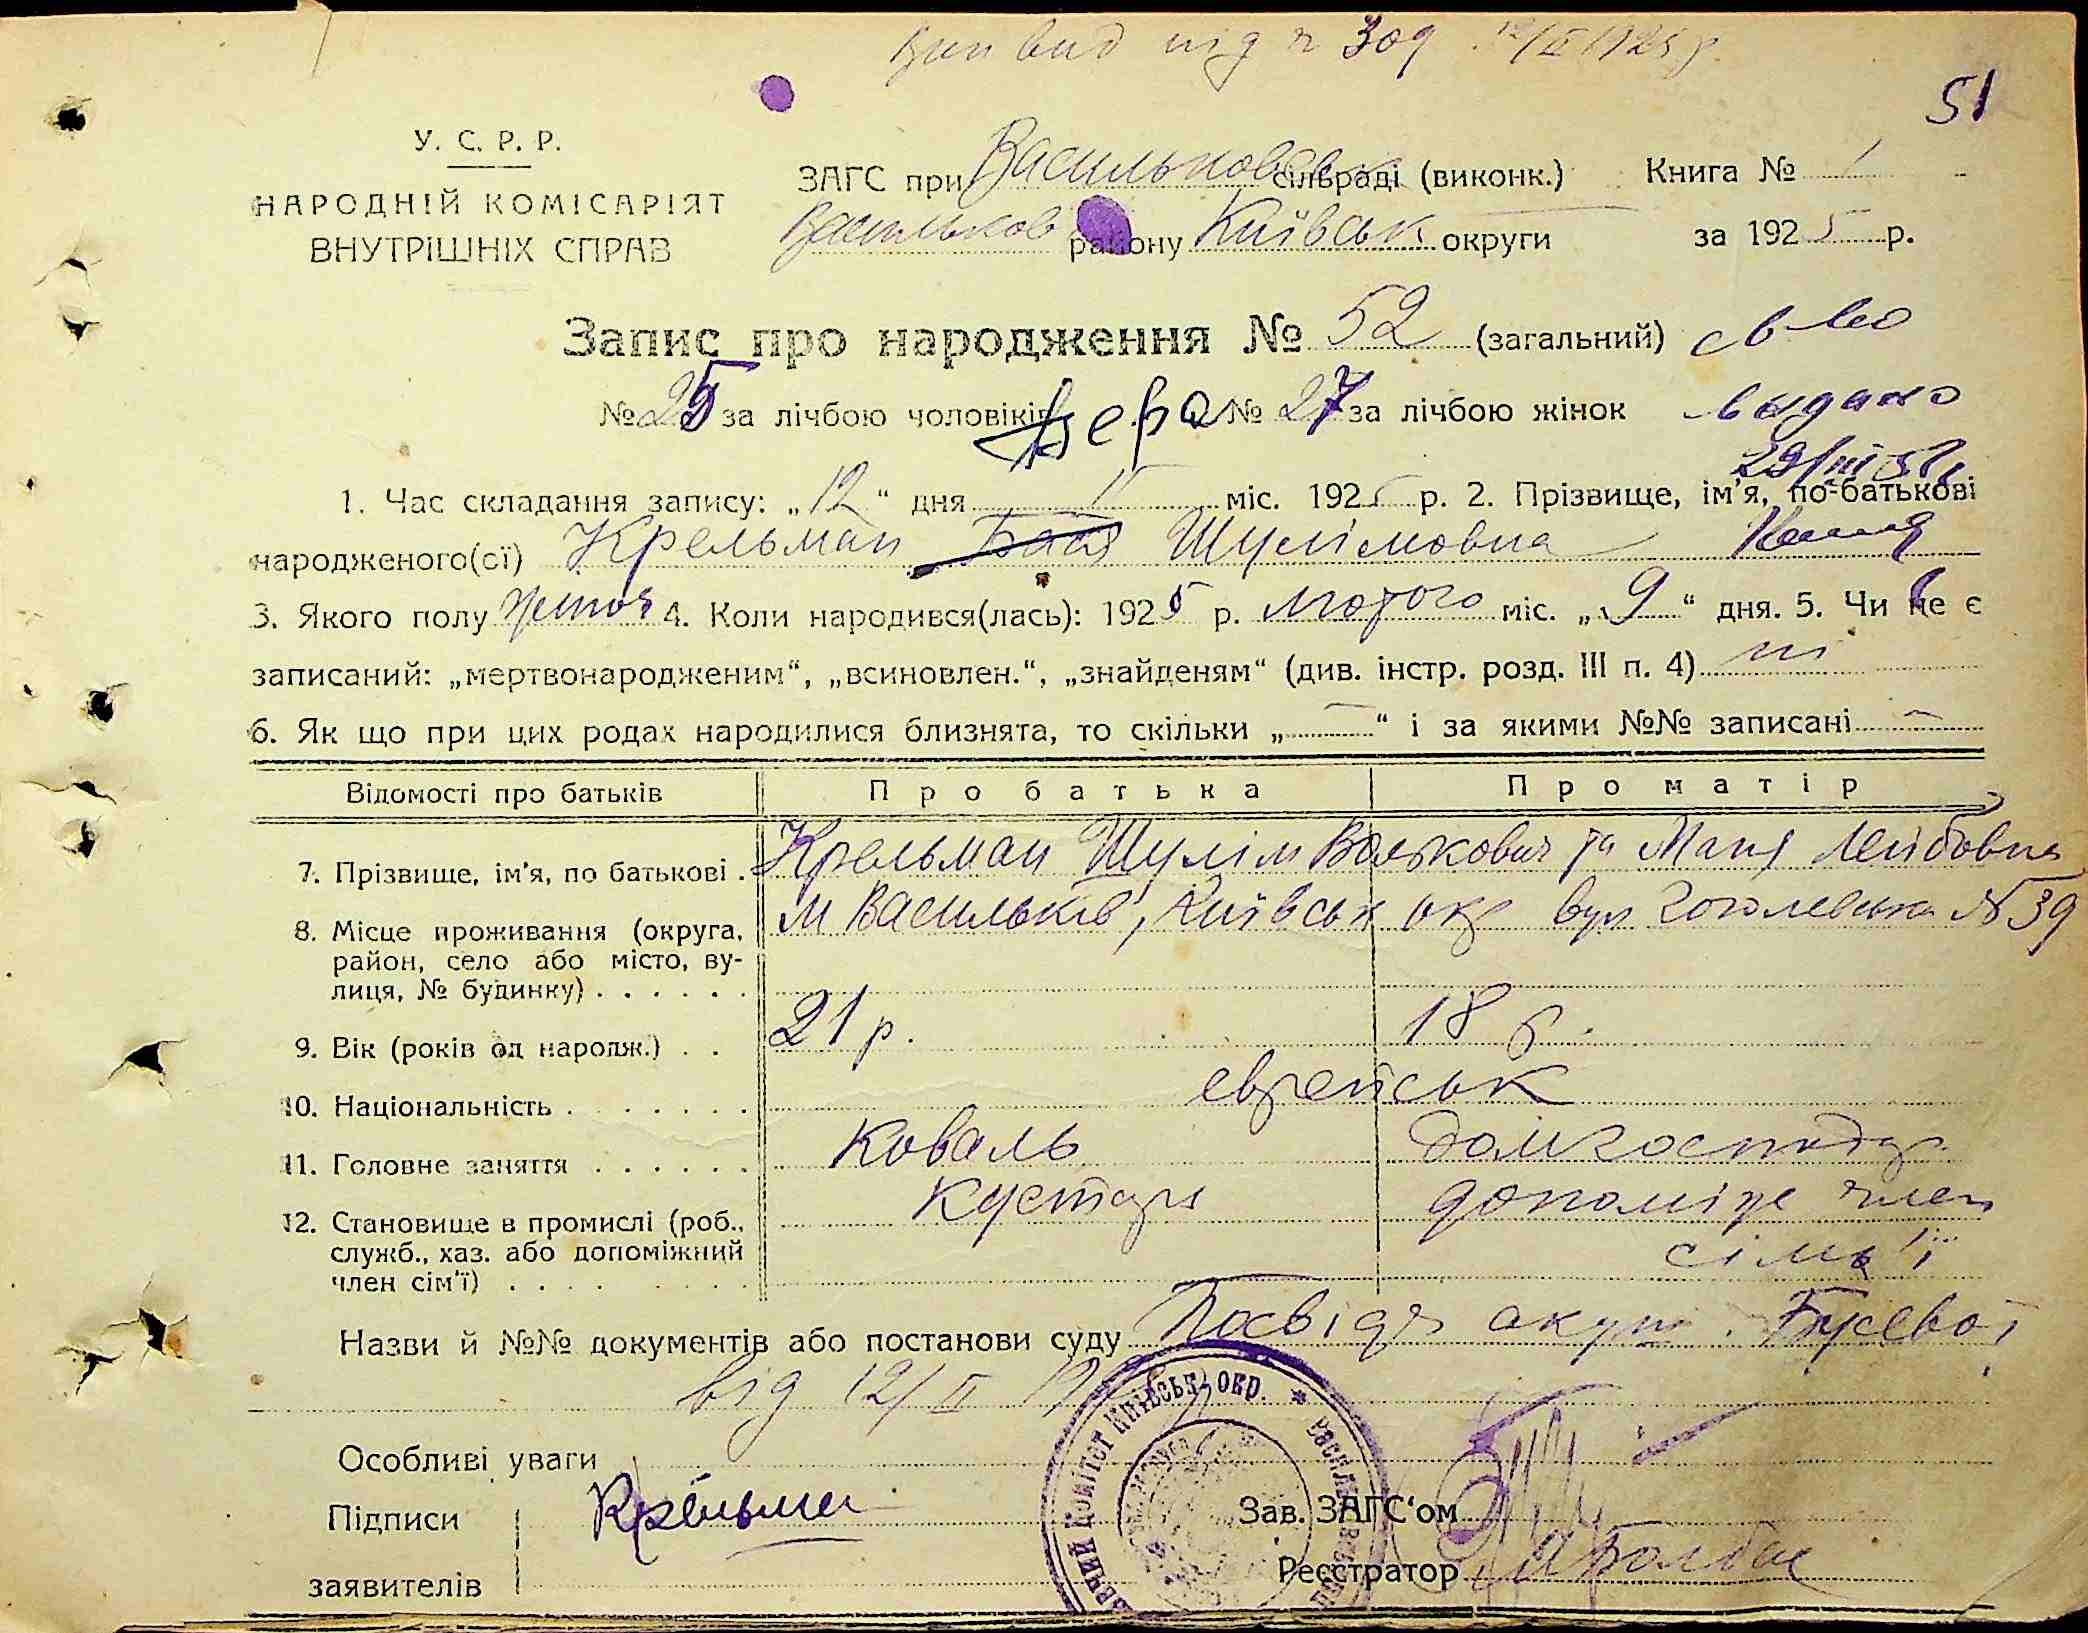 вид під № 309 12/II 1925 р.
51
У. С. Р. Р.
НАРОДНІЙ КОМІСАРІЯТ
ВНУТРІШНІХ СПРАВ
ЗАГС при Васильковськ сільраді (виконк.) Книга № 1
Васильков району Київськ округи за 1925 р.
Запис про народження № 52 (загальний) св-во
№ 25 за лічбою чоловіків Вера № 27 за лічбою жінок выдано
1. Час складання запису: „12“ дня II міс. 1925 р. 2. Прізвище, ім'я, по-батькові
народженого(сі) Крельман Бася Шулімовна
3. Якого полу жіноч 4. Коли народився(лась): 1925 р. лютого міс. „9“ дня. 5. Чи не є
записаний: „мертвонародженим“, „всиновлен.“, „знайденям“ (див. інстр. розд. III п. 4) ні
6. Як що при цих родах народилися близнята, то скільки „—“ і за якими №№ записані —
Відомості про батьків Про батька Про матір
7. Прізвище, ім'я, по батькові . Крельман Шулім Волькович та Маня Лейбовна
8. Місце проживання (округа, район, село або місто, вулиця, № будинку) . . . . . . м Васильків, Київськ окр вул Гоголевська № 39
9. Вік (років од народж.) . . 21 р. 18 р.
10. Національність . . . . . . . єврейськ
11. Головне заняття . . . . . . Коваль домгосподар
12. Становище в промислі (роб., служб., хаз. або допоміжний член сім'ї) . . . . Кустарь допоміж член
сімьї
Назви й №№ документів або постанови суду Посвідч акуш. Бусевої
від 12/II
Особливі уваги
Підписи Крельман
Зав. ЗАГС‘ом
заявителів
Реєстратор